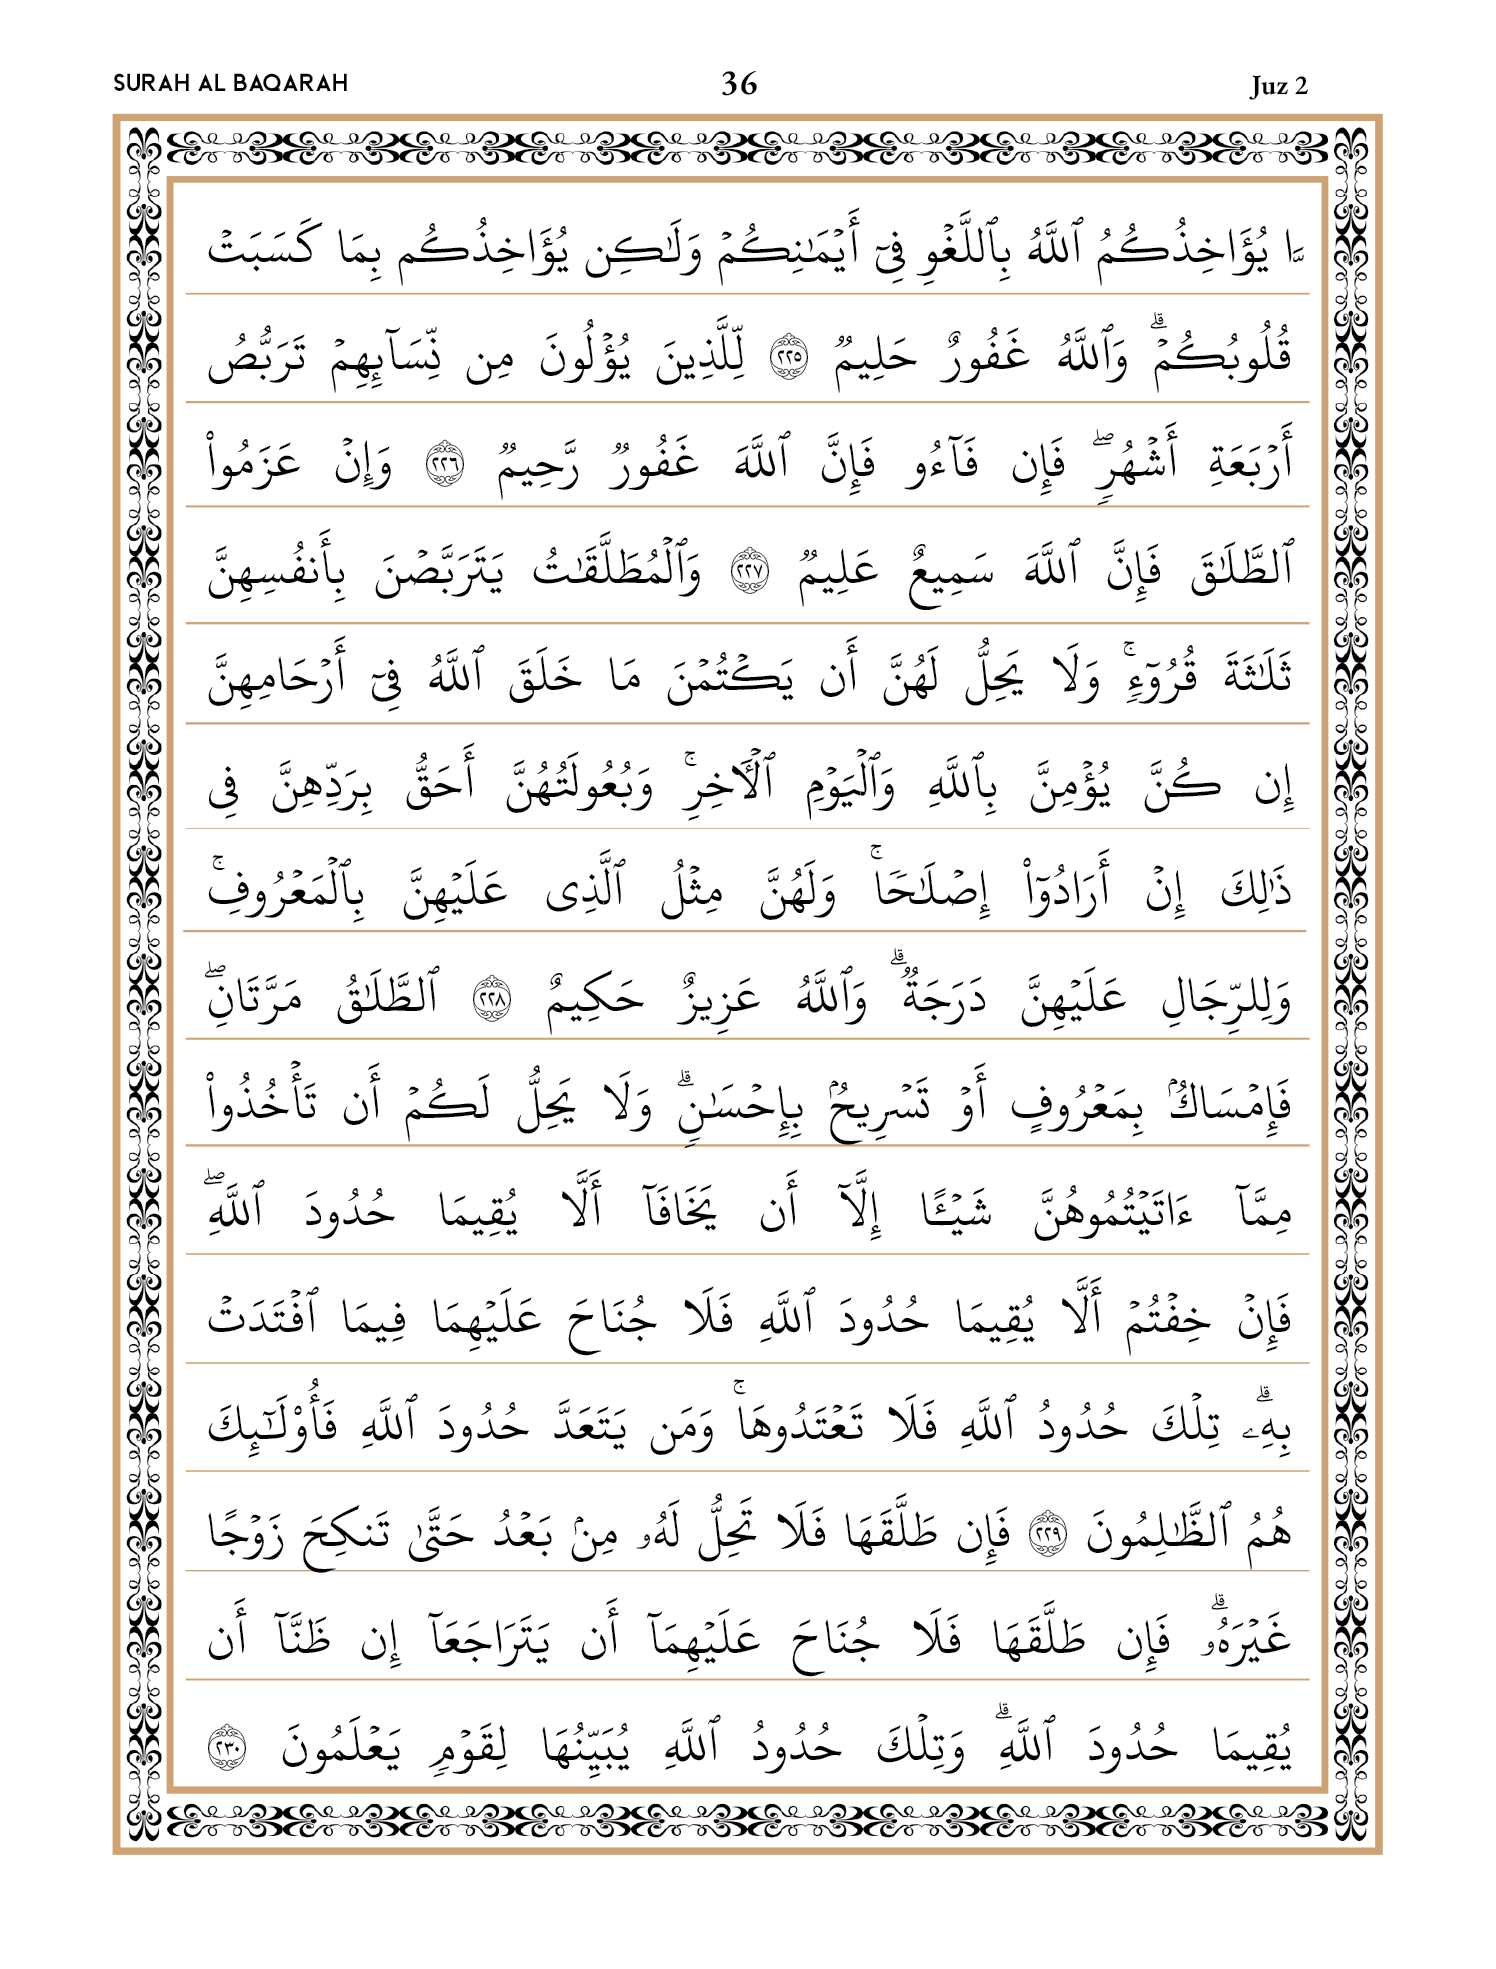 SURAH AL BAQARAH 36 Juz 2
يُؤَاخِذُكُمُ ٱللَّهُ بِٱللَّغْوِ فِىٓ أَيْمَٰنِكُمْ وَلَٰكِن يُؤَاخِذُكُم بِمَا كَسَبَتْ
قُلُوبُكُمْ ۗ وَٱللَّهُ غَفُورٌ حَلِيمٌ ٢٢٥ لِّلَّذِينَ يُؤْلُونَ مِن نِّسَآئِهِمْ تَرَبُّصُ
أَرْبَعَةِ أَشْهُرٍ ۖ فَإِن فَآءُو فَإِنَّ ٱللَّهَ غَفُورٌ رَّحِيمٌ ٢٢٦ وَإِنْ عَزَمُوا۟
ٱلطَّلَٰقَ فَإِنَّ ٱللَّهَ سَمِيعٌ عَلِيمٌ ٢٢٧ وَٱلْمُطَلَّقَٰتُ يَتَرَبَّصْنَ بِأَنفُسِهِنَّ
ثَلَٰثَةَ قُرُوٓءٍ ۚ وَلَا يَحِلُّ لَهُنَّ أَن يَكْتُمْنَ مَا خَلَقَ ٱللَّهُ فِىٓ أَرْحَامِهِنَّ
إِن كُنَّ يُؤْمِنَّ بِٱللَّهِ وَٱلْيَوْمِ ٱلْـَٔاخِرِ ۚ وَبُعُولَتُهُنَّ أَحَقُّ بِرَدِّهِنَّ فِى
ذَٰلِكَ إِنْ أَرَادُوٓا۟ إِصْلَٰحًا ۚ وَلَهُنَّ مِثْلُ ٱلَّذِى عَلَيْهِنَّ بِٱلْمَعْرُوفِ ۚ
وَلِلرِّجَالِ عَلَيْهِنَّ دَرَجَةٌ ۗ وَٱللَّهُ عَزِيزٌ حَكِيمٌ ٢٢٨ ٱلطَّلَٰقُ مَرَّتَانِ ۖ
فَإِمْسَاكٌۢ بِمَعْرُوفٍ أَوْ تَسْرِيحٌۢ بِإِحْسَٰنٍ ۗ وَلَا يَحِلُّ لَكُمْ أَن تَأْخُذُوا۟
مِمَّآ ءَاتَيْتُمُوهُنَّ شَيْـًٔا إِلَّآ أَن يَخَافَآ أَلَّا يُقِيمَا حُدُودَ ٱللَّهِ ۖ
فَإِنْ خِفْتُمْ أَلَّا يُقِيمَا حُدُودَ ٱللَّهِ فَلَا جُنَاحَ عَلَيْهِمَا فِيمَا ٱفْتَدَتْ
بِهِۦ ۗ تِلْكَ حُدُودُ ٱللَّهِ فَلَا تَعْتَدُوهَا ۚ وَمَن يَتَعَدَّ حُدُودَ ٱللَّهِ فَأُو۟لَٰٓئِكَ
هُمُ ٱلظَّٰلِمُونَ ٢٢٩ فَإِن طَلَّقَهَا فَلَا تَحِلُّ لَهُۥ مِنۢ بَعْدُ حَتَّىٰ تَنكِحَ زَوْجًا
غَيْرَهُۥ ۗ فَإِن طَلَّقَهَا فَلَا جُنَاحَ عَلَيْهِمَآ أَن يَتَرَاجَعَآ إِن ظَنَّآ أَن
يُقِيمَا حُدُودَ ٱللَّهِ ۗ وَتِلْكَ حُدُودُ ٱللَّهِ يُبَيِّنُهَا لِقَوْمٍ يَعْلَمُونَ ٢٣٠